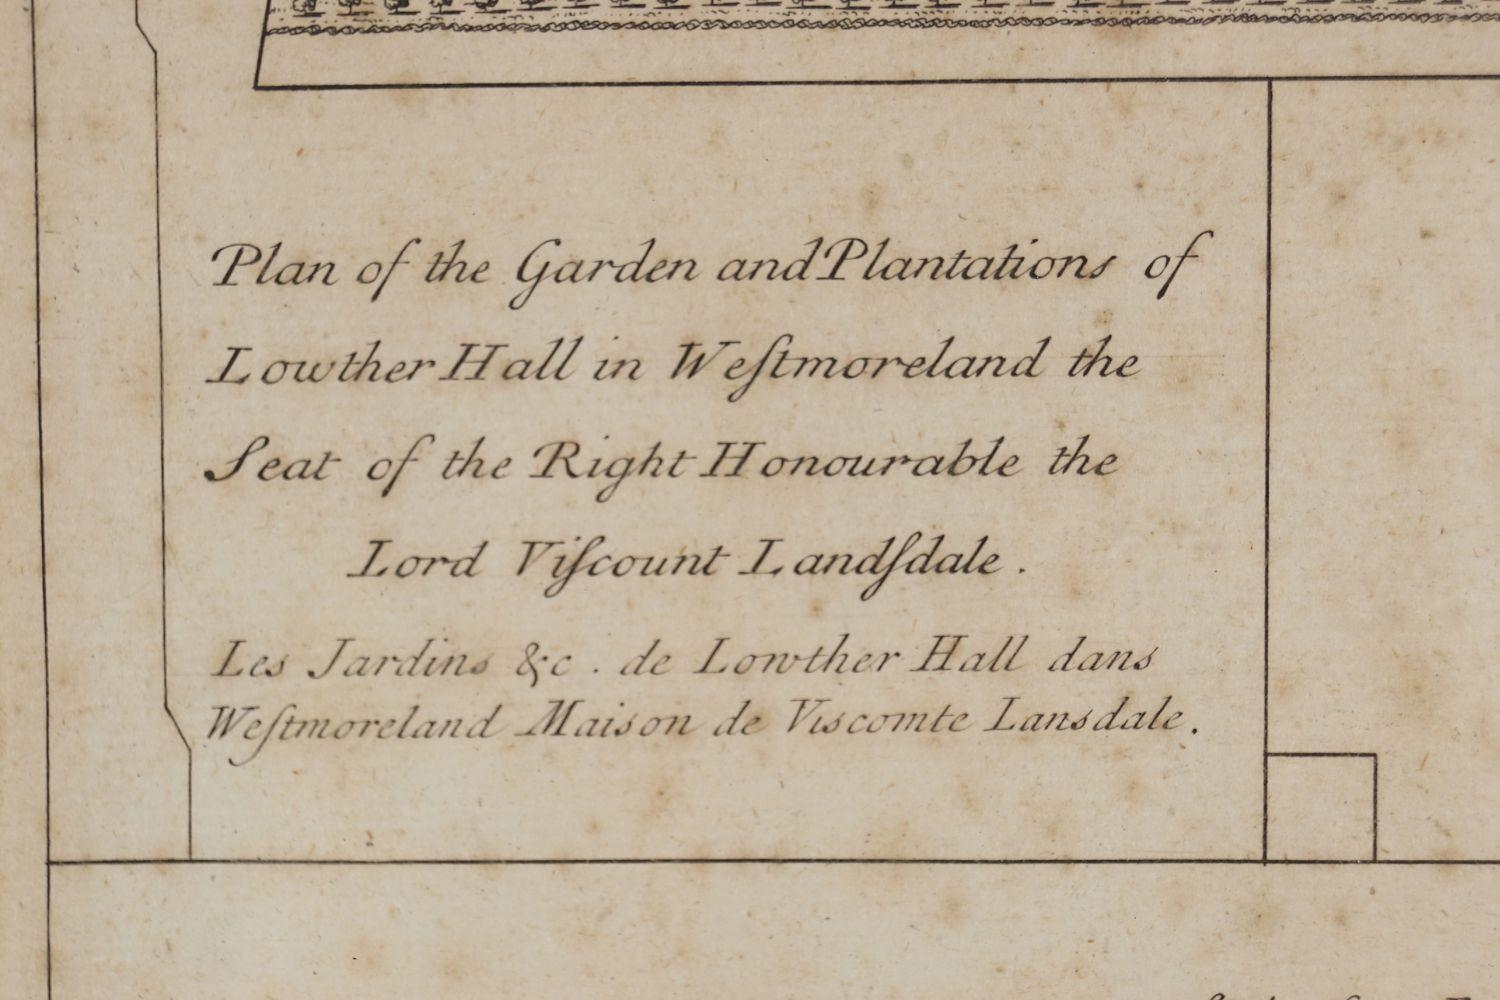 Plan of the Garden and Plantations of
Lowther Hall in Weſtmoreland the
Seat of the Right Honourable the
Lord Viſcount Landſdale.
Les Jardins &c. de Lowther Hall dans
Weſtmoreland Maison de Viscomte Lansdale.